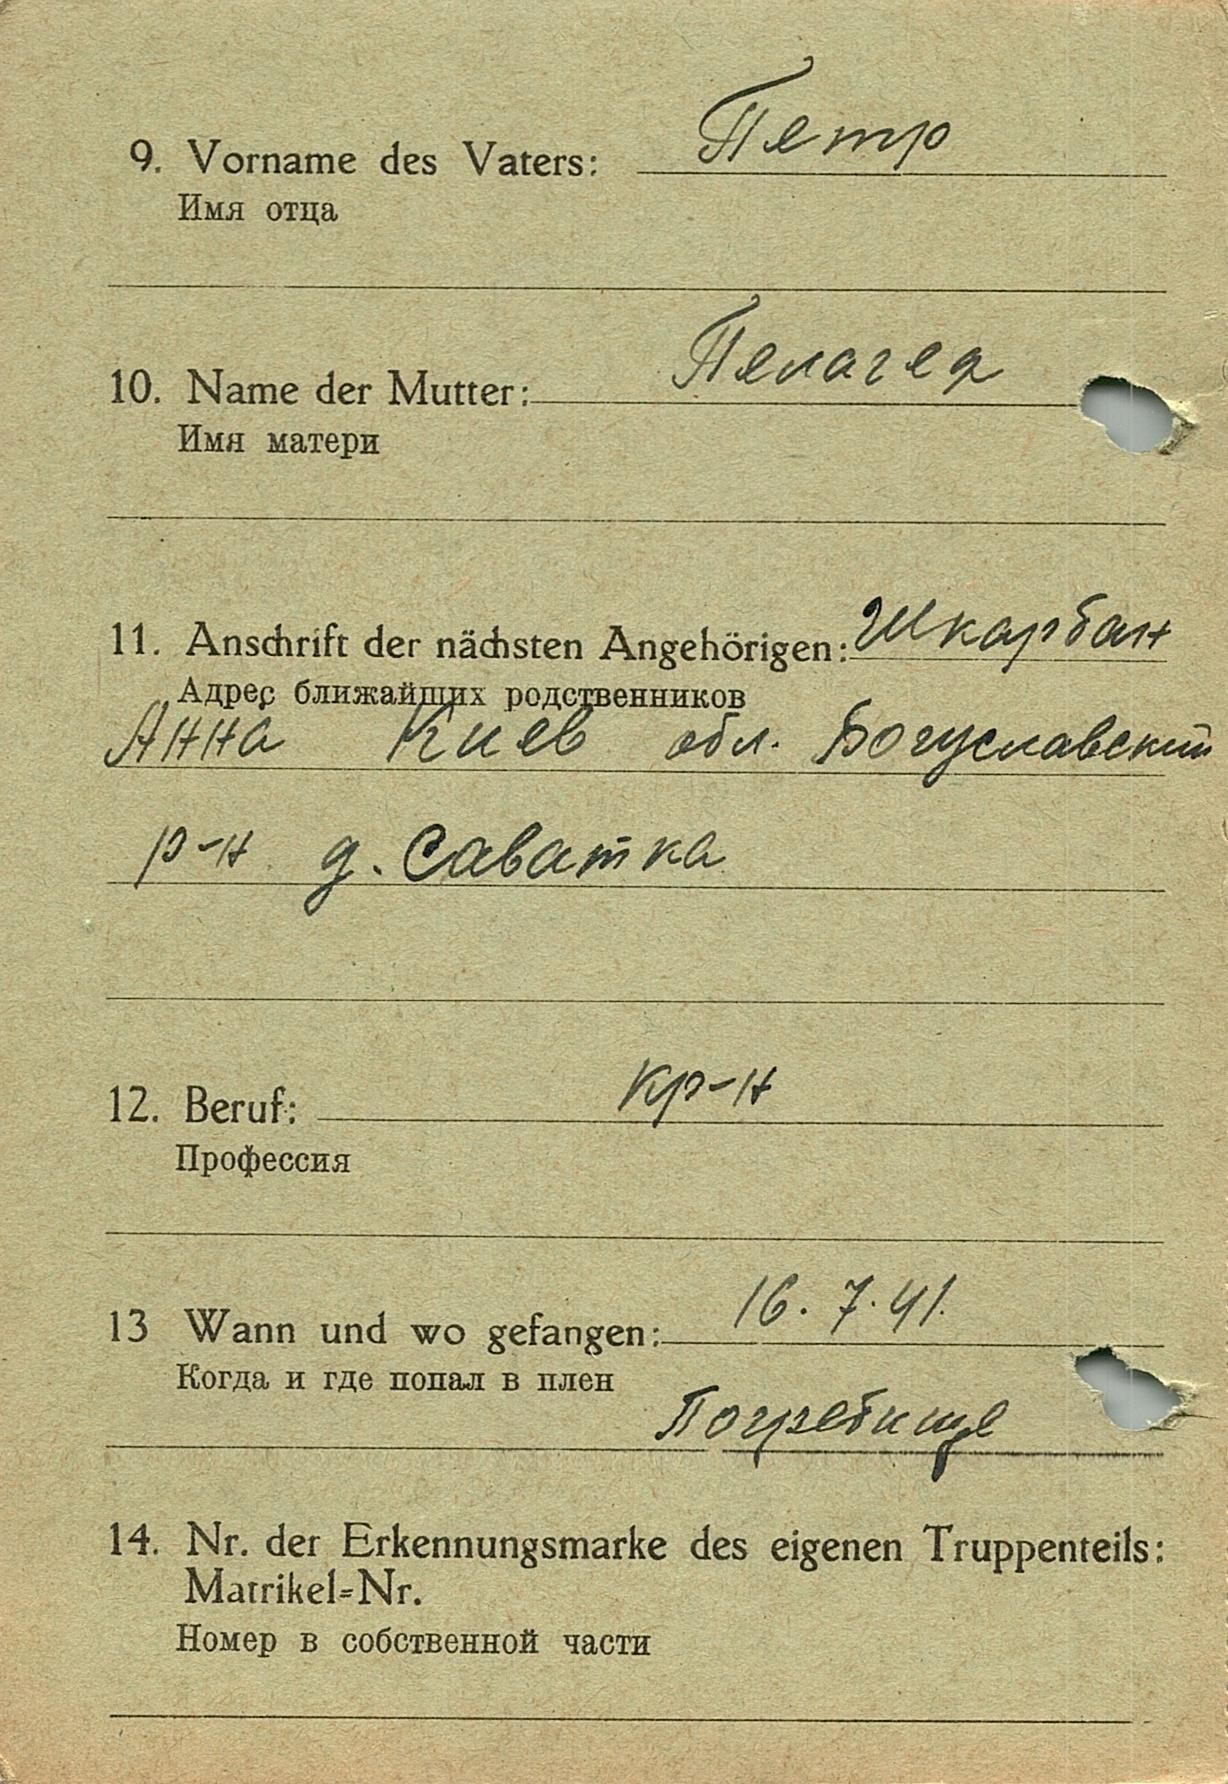 9. Vorname des Vaters: Петр
Имя отца
10. Name der Mutter: Пелагея
Имя матери
11. Anschrift der nächsten Angehörigen: Шкарбан
Адрес ближайших родственников
Анна Киев обл. Богуславский
р-н д. Саватка
12. Beruf: кр-н
Профессия
13 Wann und wo gefangen: 16. 7. 41.
Когда и где попал в плен
Погребище
14. Nr. der Erkennungsmarke des eigenen Truppenteils:
Matrikel=Nr.
Номер в собственной части